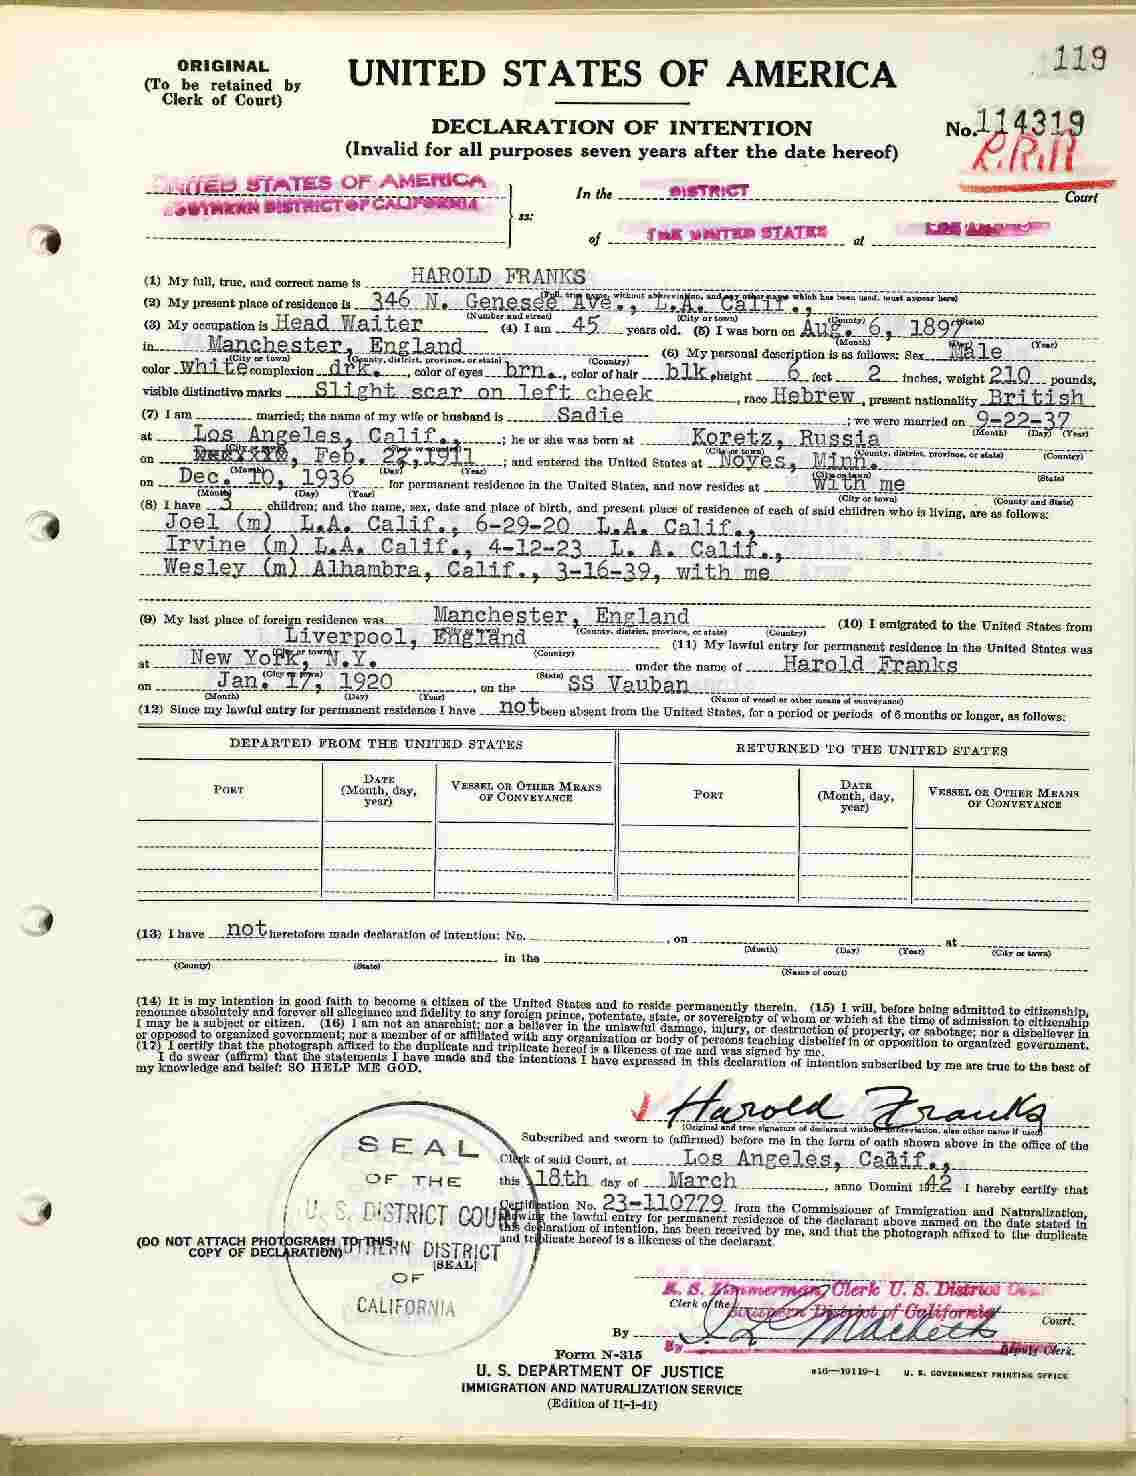 119
ORIGINAL
(To be retained by
Clerk of Court)
UNITED STATES OF AMERICA
DECLARATION OF INTENTION
(Invalid for all purposes seven years after the date hereof)
No. 114319
R.R.R
UNITED STATES OF AMERICA
SOUTHERN DISTRICT OF CALIFORNIA
ss:
In the DISTRICT Court
of THE UNITED STATES at LOS ANGELES
(1) My full, true, and correct name is HAROLD FRANKS
(Full, true name, without abbreviation, and any other name which has been used, must appear here)
(2) My present place of residence is 346 N. Genesee Ave., L.A. Calif.,
(Number and street) (City or town) (County) (State)
(3) My occupation is Head Waiter (4) I am 45 years old. (5) I was born on Aug. 6, 1897
(Month) (Day) (Year)
in Manchester, England (6) My personal description is as follows: Sex Male
(City or town) (County, district, province, or state) (Country)
color white complexion drk., color of eyes brn., color of hair blk, height 6 feet 2 inches, weight 210 pounds,
visible distinctive marks Slight scar on left cheek, race Hebrew, present nationality British
(7) I am married; the name of my wife or husband is Sadie; we were married on 9-22-37
(Month) (Day) (Year)
at Los Angeles, Calif.,; he or she was born at Koretz, Russia
(City or town) (County, district, province, or state) (Country)
on Feb. 1911; and entered the United States at Noyes, Minn.
(Month) (Day) (Year) (City or town) (State)
on Dec. 10, 1936 for permanent residence in the United States, and now resides at with me
(Month) (Day) (Year) (City or town) (County and State)
(8) I have 3 children; and the name, sex, date and place of birth, and present place of residence of each of said children who is living, are as follows:
Joel (m) L.A. Calif., 6-29-20 L.A. Calif.,
Irvine (m) L.A. Calif., 4-12-23 L. A. Calif.,
Wesley (m) Alhambra, Calif., 3-16-39, with me
(9) My last place of foreign residence was Manchester, England (10) I emigrated to the United States from
(City or town) (County, district, province, or state) (Country)
Liverpool, England (11) My lawful entry for permanent residence in the United States was
(City or town) (Country)
at New York, N.Y. under the name of Harold Franks
(City or town) (State)
on Jan. 17, 1920, on the SS Vauban
(Month) (Day) (Year) (Name of vessel or other means of conveyance)
(12) Since my lawful entry for permanent residence I have not been absent from the United States, for a period or periods of 6 months or longer, as follows:
DEPARTED FROM THE UNITED STATES RETURNED TO THE UNITED STATES
PORT DATE (Month, day, year) VESSEL OR OTHER MEANS OF CONVEYANCE PORT DATE (Month, day, year) VESSEL OR OTHER MEANS OF CONVEYANCE
(13) I have not heretofore made declaration of intention: No. , on at
(Month) (Day) (Year) (City or town)
in the
(County) (State) (Name of court)
(14) It is my intention in good faith to become a citizen of the United States and to reside permanently therein. (15) I will, before being admitted to citizenship,
renounce absolutely and forever all allegiance and fidelity to any foreign prince, potentate, state, or sovereignty of whom or which at the time of admission to citizenship
I may be a subject or citizen. (16) I am not an anarchist; nor a believer in the unlawful damage, injury, or destruction of property, or sabotage; nor a disbeliever in
or opposed to organized government; nor a member of or affiliated with any organization or body of persons teaching disbelief in or opposition to organized government.
(17) I certify that the photograph affixed to the duplicate and triplicate hereof is a likeness of me and was signed by me.
I do swear (affirm) that the statements I have made and the intentions I have expressed in this declaration of intention subscribed by me are true to the best of
my knowledge and belief: SO HELP ME GOD.
Harold Franks
(Original and true signature of declarant without abbreviation, also other name if used)
Subscribed and sworn to (affirmed) before me in the form of oath shown above in the office of the
Clerk of said Court, at Los Angeles, Calif.,
this 18th day of March, anno Domini 1942 I hereby certify that
Certification No. 23-110779 from the Commissioner of Immigration and Naturalization,
showing the lawful entry for permanent residence of the declarant above named on the date stated in
this declaration of intention, has been received by me, and that the photograph affixed to the duplicate
and triplicate hereof is a likeness of the declarant.
SEAL
OF THE
U. S. DISTRICT COURT
SOUTHERN DISTRICT
OF
CALIFORNIA
(DO NOT ATTACH PHOTOGRAPH TO THIS
COPY OF DECLARATION)
[SEAL]
R. S. Zimmerman, Clerk U. S. District Court
Clerk of the Southern District of California Court.
By
By Deputy Clerk.
Form N-315
U. S. DEPARTMENT OF JUSTICE
IMMIGRATION AND NATURALIZATION SERVICE
(Edition of 11-1-41)
16—19119-1 U. S. GOVERNMENT PRINTING OFFICE